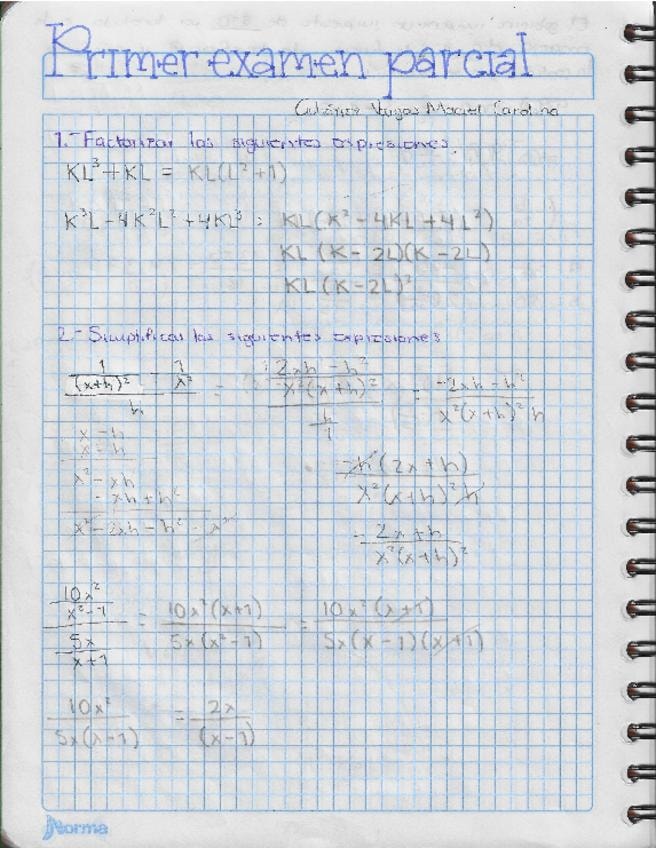 Primer examen parcial
Vargas Carolina
1.- Factorizar las siguientes expresiones.
KL³ + KL = KL(L² + 1)
K³L - 4K²L² + 4KL³ = KL(K² - 4KL + 4L²)
KL (K - 2L)(K - 2L)
KL (K - 2L)²
2.- Simplificar las siguientes expresiones
1/(x+h)² - 1/x² / h = -2xh - h² / x²(x+h)² / h/1 = -2xh - h² / x²(x+h)² h
x - h
x - h
x² - xh
- xh + h²
x² - 2xh - h² - x²
-h (2x + h) / x²(x+h)² h
- 2x + h / x²(x+h)²
10x²/x²-1 / 5x/x+1 = 10x²(x+1) / 5x(x²-1) = 10x²(x+1) / 5x(x-1)(x+1)
10x² / 5x(x-1) = 2x / (x-1)
Norma